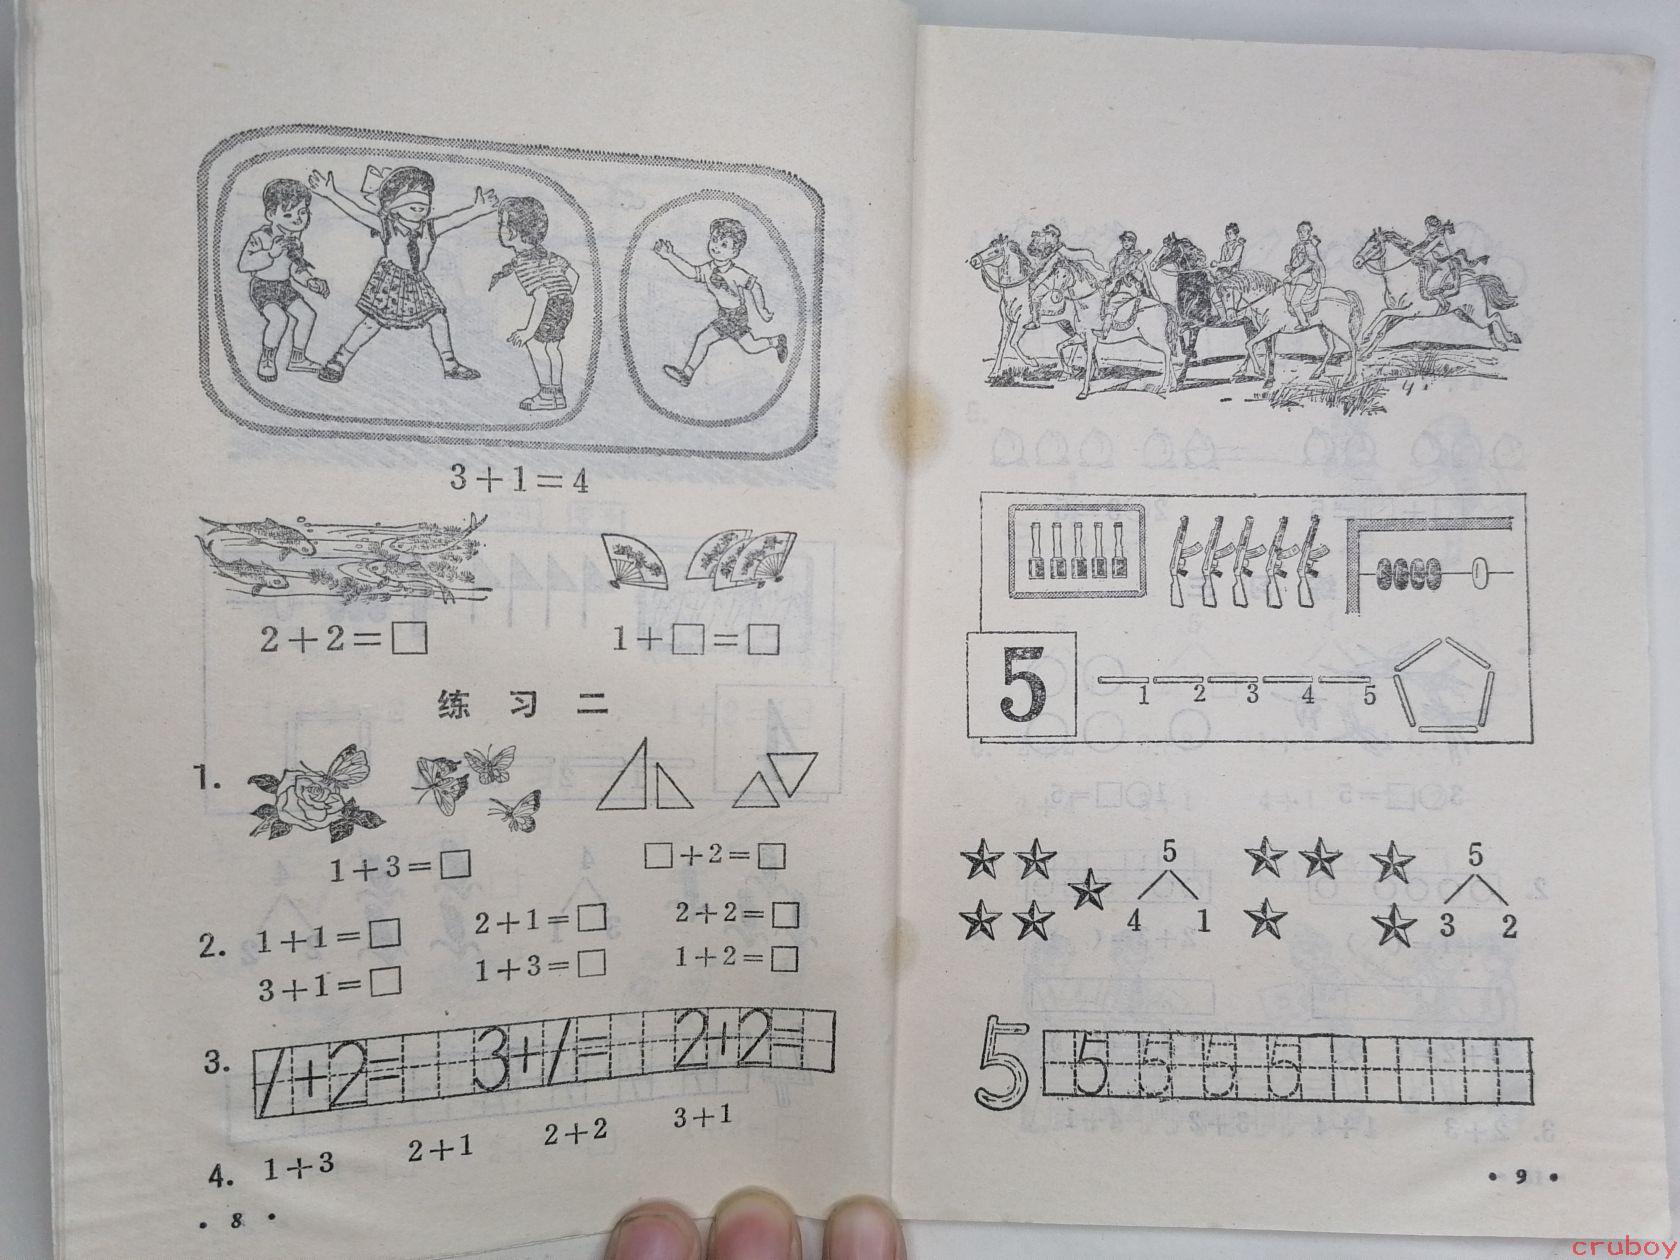 3+1=4
2+2=□ 1+□=□
练 习 二
1.
1+3=□ □+2=□
2. 1+1=□ 2+1=□ 2+2=□
3+1=□ 1+3=□ 1+2=□
3. 1+2= 3+1= 2+2=
4. 1+3 2+1 2+2 3+1
• 8 •
5
1 2 3 4 5
5 5
4 1 3 2
5 5 5 5 5
• 9 •
cruboy